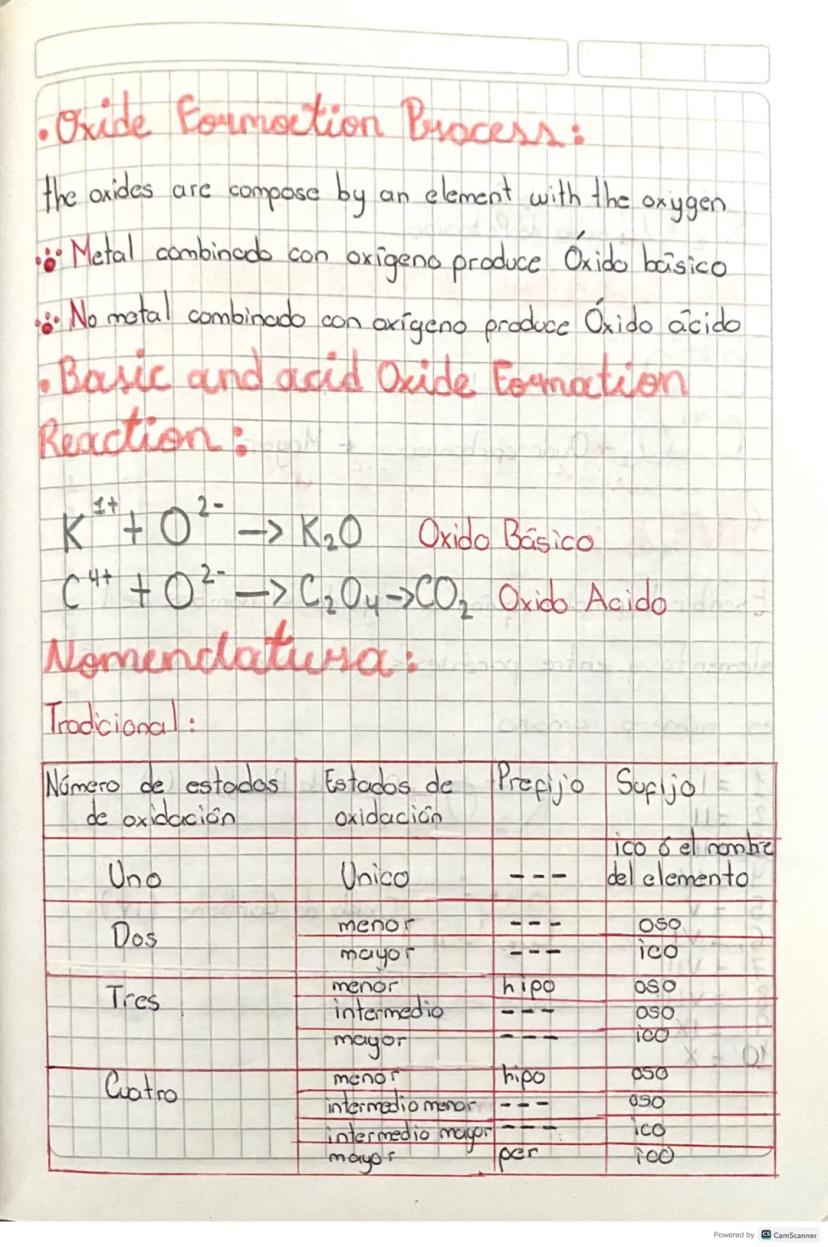 • Oxide Formaction Process:
the oxides are compose by an element with the oxygen
Metal combinado con oxígeno produce Óxido básico
No metal combinado con oxígeno produce Óxido ácido
• Basic and acid Oxide Formation
Reaction:
K¹⁺ + O²⁻ → K₂O Oxido Básico
C⁴⁺ + O²⁻ → C₂O₄ → CO₂ Oxido Acido
Nomenclatura:
Tradicional:
Número de estados de oxidación | Estados de oxidación | Prefijo | Sufijo
Uno | Unico | --- | ico ó el nombre del elemento
Dos | menor | --- | oso
mayor | --- | ico
Tres | menor | hipo | oso
intermedio | --- | oso
mayor | --- | ico
Cuatro | menor | hipo | oso
intermedio menor | --- | oso
intermedio mayor | --- | ico
mayor | per | ico
Powered by CS CamScanner